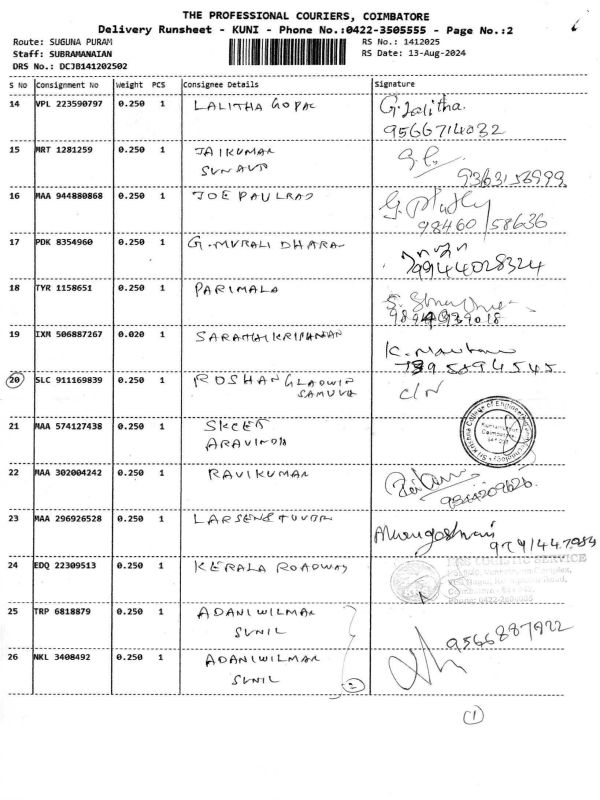 THE PROFESSIONAL COURIERS, COIMBATORE
Delivery Runsheet - KUNI - Phone No.:0422-3505555 - Page No.:2
Route: SUGUNA PURAM RS No.: 1412025
Staff: SUBRAMANAIAN RS Date: 13-Aug-2024
DRS No.: DCJB141202502
S No Consignment No Weight PCS Consignee Details Signature
14 VPL 223590797 0.250 1 LALITHA GOPAL G. Lalitha.
9566714032
15 MRT 1281259 0.250 1 JAIKUMAR
9363153999
16 MAA 944880868 0.250 1 JOE PAULRAJ
98460/58636
17 PDK 8354960 0.250 1 G. MURALI DHARAN
9944028324
18 TYR 1158651 0.250 1 PARIMALA
19 IXM 506887267 0.020 1 SARATHI KRISHNAN
20 SLC 911169839 0.250 1 ROSHAN GLADWIN C/N
SAMUVE
21 MAA 574127438 0.250 1 SKCET
ARAVINDH
Sri Krishna College of Engineering
22 MAA 302004242 0.250 1 RAVIKUMAR
23 MAA 296926528 0.250 1 LARSEN & TUVRO
24 EDQ 22309513 0.250 1 KERALA ROADWAY
LOGISTIC SERVICE
25 TRP 6818879 0.250 1 ADANI WILMAR
SUNIL 9566887922
26 NKL 3408492 0.250 1 ADANI WILMAR
SUNIL 2
1